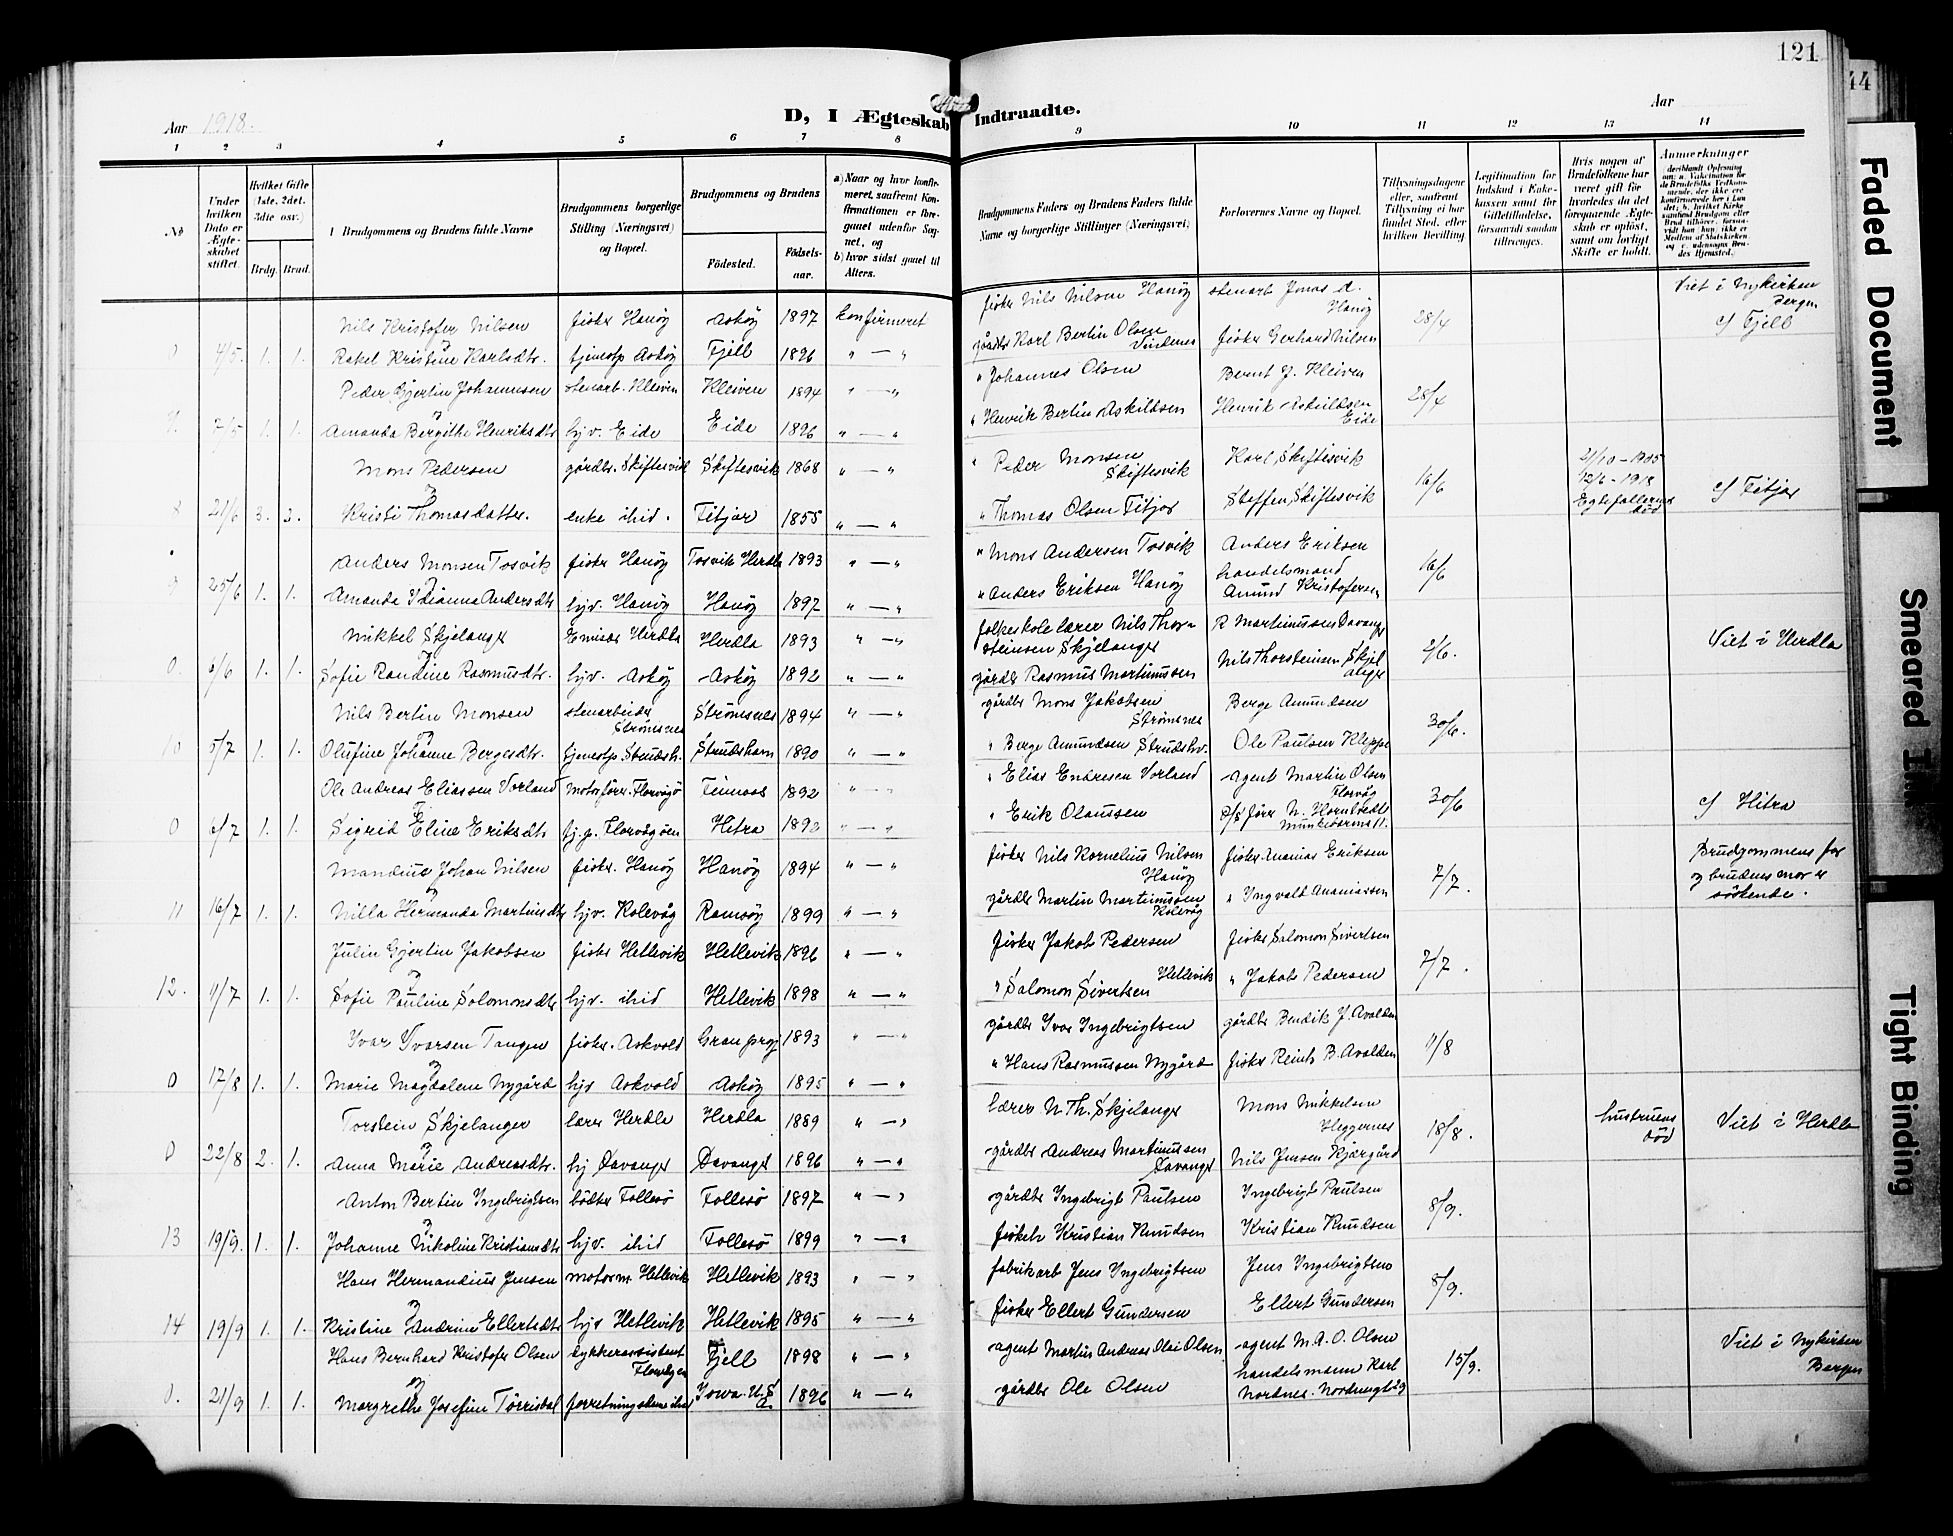 121
44
Aar 1918.
D, I Ægteskab Indtraadte.
Aar
1 2 3 4 5 6 7 8 9 10 11 12 13 14
No
Under hvilken Dato er Ægteskabet stiftet.
Hvilket Gifte (1ste, 2det, 3die osv.)
Brdg. Brud.
Brudgommens og Brudens fulde Navne
Brudgommens borgerlige Stilling (Næringsvei) og Bopæl.
Brudgommens og Brudens
Fødested. Fødselsaar.
a) Naar og hvor konfirmeret, saafremt Konfirmationen er foregaaet udenfor Sognet, og
b) hvor sidst gaaet til Alters.
Brudgommens Faders og Brudens Faders fulde Navne og borgerlige Stillinger (Næringsvei)
Forlovernes Navne og Bopæl.
Tillysningsdagene eller, saafremt Tillysning ei har fundet Sted, efter hvilken Bevilling
Legitimation for Indskud i Enkekassen samt for Giftetilladelse, forsaavidt saadan tiltrænges.
Hvis nogen af Brudefolkene har været gift før hvorledes da det foregaaende Ægteskab er opløst, samt om lovligt Skifte er holdt.
Anmærkninger
Nils Kristofer Nilsen fisker Hanøy Askøy 1897 konfirmeret fisker Nils Nilsen Hanøy stenarb Jonas A. Hanøy 28/4 Viet i Nykirken Bergen
4/5. 1. 1. Rakel Kristine Karlsdtr. tjenestp Askøy Fjell 1896 " — " gårdbr Karl Bertin Olsen Vindenes fisker Gerhard Nilsen c/ Fjell
Peder Gjertin Johannesen stenarb. Kleiven Kleiven 1894 " — " " Johannes Olsen Bernt J. Kleiven 28/4
7/5 1. 1. Amanda Bergithe Henriksdtr hjv. Eide Eide 1896 " — " " Henrik Bertin Askildsen Henrik Askildsen Eide
Mons Pedersen gårdbr. Skiftesvik Skiftesvik 1868 " — " " Peder Monsen Skiftesvik Karl Skiftesvik 16/6
8 21/6 3. 2. Kristi Thomasdatter. enke ibid. Fitjar 1855 " — " " Thomas Olsen Fitjar Steffen Skiftesvik Egtefællernes død c/ Fitjar
Anders Monsen Tosvik fisker Hanøy Tosvik Herdla 1893 " — " " Mons Andersen Tosvik Anders Eriksen 16/6
9 25/6 1. 1. hjv. Hanøy Hanøy 1897 " — " " Anders Eriksen Hanøy handelsmand Amund Kristofersen
Mikkel Skjelanger Herdla Herdla 1893 " — " folkeskolelærer Nils Thorsteinsen Skjelanger R Martinussen Davanger 2/6. Viet i Herdla
0 6/6 1. 1. Sofie Randine Rasmusdtr. hjv. Askøy Askøy 1892 " — " gårdbr Rasmus Martinussen Nils Thorsteinsen Skjelanger
Nils Bertin Monsen stenarbeider Strømsnes Strømsnes 1894 " — " gårdbr Mons Jakobsen Strømsnes Berge Amundsen 30/6.
10 5/7 1. 1. Olufine Johanne Bergesdtr. tjenestp Strudsh. Strudshavn 1890 " — " " Berge Amundsen Strudshv. Ole Paulsen Kleppe
Ole Andreas Eliassen Vorland motorfører. Florvågø Finnaas 1892 " — " " Elias Endresen Vorland agent Martin Olsen Florvåg 30/6
0 6/7 1. 1. Sigrid Eline Eriksdtr tj.p. Florvågøen Hitra 1892 " — " " Erik Olaussen c/ Hitra
Mandius Johan Nilsen fisker. Hanøy Hanøy 1894 " — " fisker Nils Kornelius Nilsen Hanøy fisker Ananias Eriksen 7/7. Brudgommens far og brudens mor er søskende.
11 16/7 1. 1. Nilla Hermanda Martinsdtr hjv. Kolevåg Ramsøy 1899 " — " gårdbr Martin Martinussen Kolevåg " Ingvald Ananiassen
Julin Gjertin Jakobsen fisker Hetlevik Hetlevik 1896 " — " fisker Jakob Pedersen Hetlevik fisker Salomon Sivertsen 7/7.
12. 11/7 1. 1. Sofie Pauline Salomonsdtr hjv. ibid Hetlevik 1898 " — " " Salomon Sivertsen " Jakob Pedersen
Ivar Ivarsen Tangen fisker. Askvold Gran prgj 1893 " — " gårdbr Ivar Ingebrigtsen gårdbr Bendik J. Avalden 11/8
0 17/8 1. 1. Marie Magdalene Nygård hjv Askvold Askøy 1895 " — " " Hans Rasmussen Nygård fisker Reints B. Avalden
Torstein Skjelanger lærer Herdla Herdla 1889 " — " lærer N. Th. Skjelanger Mons Mikkelsen Heggernes 18/8. hustruens død Viet i Herdla
0 22/8 2. 1. Anna Marie Andreasdtr. hj Davanger Davanger 1896 " — " gårdbr Andreas Martinussen Davanger Nils Jensen Kjærgård
Anton Bertin Ingebrigtsen bødker Follesø Follesø 1897 " — " gårdbr Ingebrigt Paulsen Ingebrigt Paulsen 8/9.
13 19/9. 1. 1. Johanne Nikoline Kristiansdtr hjv. ibid Follesø 1899 " — " Kristian Knudsen Kristian Knudsen
Hans Hermandius Jensen motorm. Hetlevik Hetlevik 1893 " — " fabrikarb Jens Ingebrigtsen Jens Ingebrigtsen 8/9.
14 19/9 1. 1. Kristine Sandrine Ellertsdtr hjv Hetlevik Hetlevik 1895 " — " fisker Ellert Gundersen Ellert Gundersen
Hans Bernhard Kristofer Olsen Fjell 1898 " — " agent Martin Andreas Olai Olsen agent M. A. O. Olsen 15/9. Viet i Nykirken Bergen
0. 21/9 1. 1. Margrethe Josefine Tørrisdal Iowa. U.S 1896 " — " gårdbr Ole Olsen handelsmann Karl Nordnes
Faded Document
Smeared Ink
Tight Binding